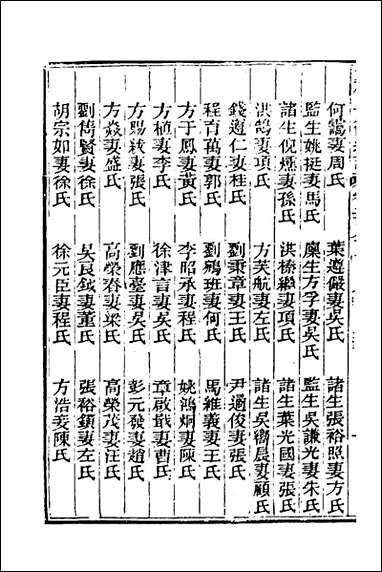 何鶴妻周氏　葉遵儼妻吳氏　諸生張裕照妻方氏
監生姚挺妻馬氏　廩生方孚妻吳氏　監生吳謙光妻朱氏
諸生倪燻妻孫氏　洪榛繼妻項氏　諸生葉光國妻張氏
洪鵠妻項氏　方芙航妻左氏　諸生吳衢晨妻顧氏
錢遵仁妻桂氏　劉秉章妻王氏　尹適俊妻張氏
程育萬妻郭氏　劉鵷班妻何氏　馬維義妻王氏
方于鳳妻黃氏　李昭承妻程氏　姚鴻炯妻陳氏
方植妻李氏　徐津言妻吳氏　章啟戢妻曹氏
方賜紱妻張氏　劉應臺妻吳氏　彭元發妻趙氏
方焱妻盛氏　高榮春妻梁氏　高榮茂妻汪氏
劉儔賢妻徐氏　吳良鉞妻董氏　張裕鎮妻左氏
胡宗如妻徐氏　徐元臣妻程氏　方浩妾陳氏